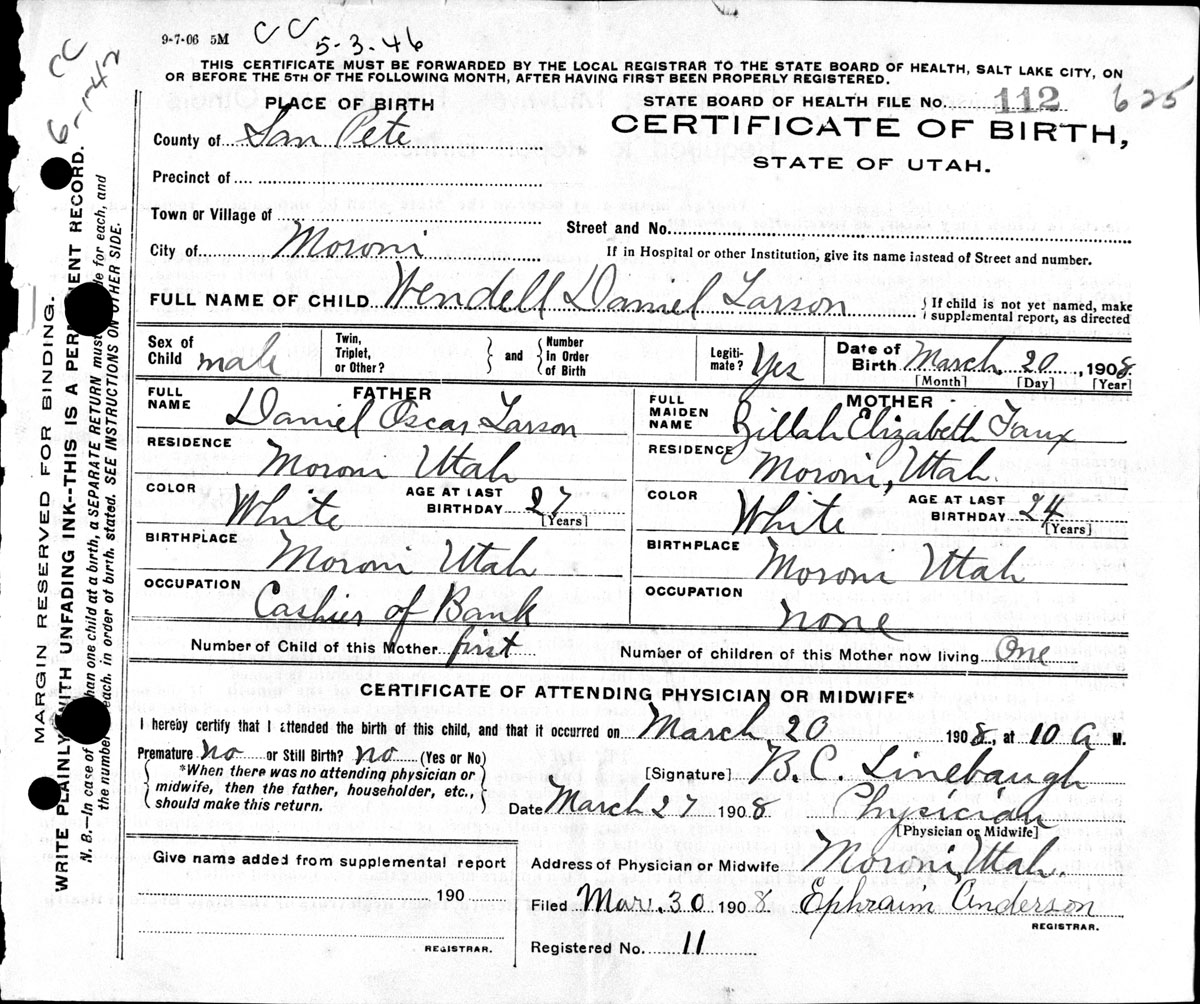 9-7-06 5M CC 5-3-46
THIS CERTIFICATE MUST BE FORWARDED BY THE LOCAL REGISTRAR TO THE STATE BOARD OF HEALTH, SALT LAKE CITY, ON
OR BEFORE THE 5TH OF THE FOLLOWING MONTH, AFTER HAVING FIRST BEEN PROPERLY REGISTERED.
PLACE OF BIRTH
County of San Pete
Precinct of
Town or Village of
City of Moroni
STATE BOARD OF HEALTH FILE No. 112 625
CERTIFICATE OF BIRTH,
STATE OF UTAH.
Street and No.
If in Hospital or other Institution, give its name instead of Street and number.
FULL NAME OF CHILD Wendell Daniel Larson
If child is not yet named, make
supplemental report, as directed
Sex of
Child male
Twin,
Triplet,
or Other?
and
Number
in Order
of Birth
Legiti-
mate? Yes
Date of
Birth March 20, 1908
[Month] [Day] [Year]
FATHER
FULL
NAME Daniel Oscar Larson
RESIDENCE Moroni Utah
COLOR White
AGE AT LAST
BIRTHDAY 27
[Years]
BIRTHPLACE Moroni Utah
OCCUPATION
Cashier of Bank
MOTHER
FULL
MAIDEN
NAME Zillah Elizabeth Faux
RESIDENCE Moroni, Utah.
COLOR White
AGE AT LAST
BIRTHDAY 24
[Years]
BIRTHPLACE Moroni Utah
OCCUPATION
none
Number of Child of this Mother first
Number of children of this Mother now living One
CERTIFICATE OF ATTENDING PHYSICIAN OR MIDWIFE*
I hereby certify that I attended the birth of this child, and that it occurred on March 20 1908, at 10 a M.
Premature no or Still Birth? no (Yes or No)
*When there was no attending physician or
midwife, then the father, householder, etc.,
should make this return.
[Signature] B. C. Linebaugh
Date March 27 1908 Physician
[Physician or Midwife]
Give name added from supplemental report
190
REGISTRAR.
Address of Physician or Midwife Moroni, Utah.
Filed Mar. 30 1908 Ephraim Anderson
REGISTRAR.
Registered No. 11
MARGIN RESERVED FOR BINDING.
WRITE PLAINLY WITH UNFADING INK--THIS IS A PERMANENT RECORD.
N. B.—In case of when one child at a birth, a SEPARATE RETURN must for each, and
the number each, in order of birth, stated. SEE INSTRUCTIONS ON OTHER SIDE.
CC